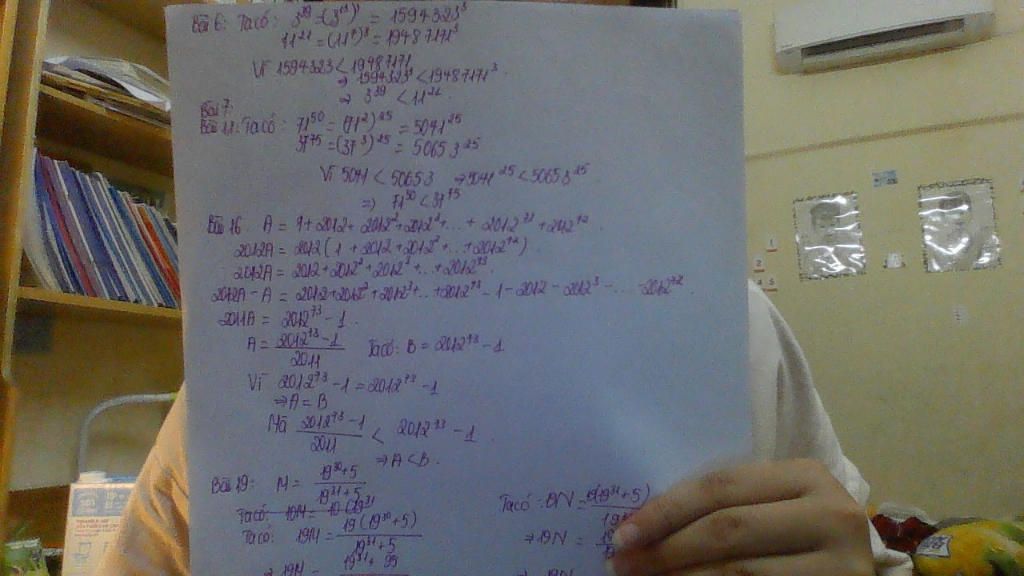 Bài 6: Ta có: 3³⁹ = (3¹³)³ = 1594323³
11²¹ = (11⁷)³ = 19487171³
Vì 1594323 < 19487171
⇒ 1594323³ < 19487171³.
⇒ 3³⁹ < 11²¹.
Bài 7:
Bài 11: Ta có: 71⁵⁰ = (71²)²⁵ = 5041²⁵
37⁷⁵ = (37³)²⁵ = 50653²⁵
Vì 5041 < 50653 ⇒ 5041²⁵ < 50653²⁵.
⇒ 71⁵⁰ < 37⁷⁵
Bài 16 A = 1 + 2012 + 2012² + 2012³ + ... + 2012⁷¹ + 2012⁷²
2012A = 2012(1 + 2012 + 2012² + ... + 2012⁷²).
2012A = 2012 + 2012² + 2012³ + ... + 2012⁷³.
2012A - A = 2012 + 2012² + 2012³ + ... + 2012⁷³ - 1 - 2012 - 2012³ - ... - 2012⁷².
2011A = 2012⁷³ - 1.
A = (2012⁷³ - 1)/2011 Ta có: B = 2012⁷³ - 1
Vì 2012⁷³ - 1 = 2012⁷³ - 1
⇒ A = B
Mà (2012⁷³ - 1)/2011 < 2012⁷³ - 1.
⇒ A < B.
Bài 19: M = (19³⁰ + 5)/(19³¹ + 5)
Ta có: 19M =
Ta có: 19M = 19(19³⁰ + 5)/(19³¹ + 5)
⇒ 19M = 19³¹ + 95
Ta có: 19N = 19(19³¹ + 5)
⇒ 19N =
⇒ 19N